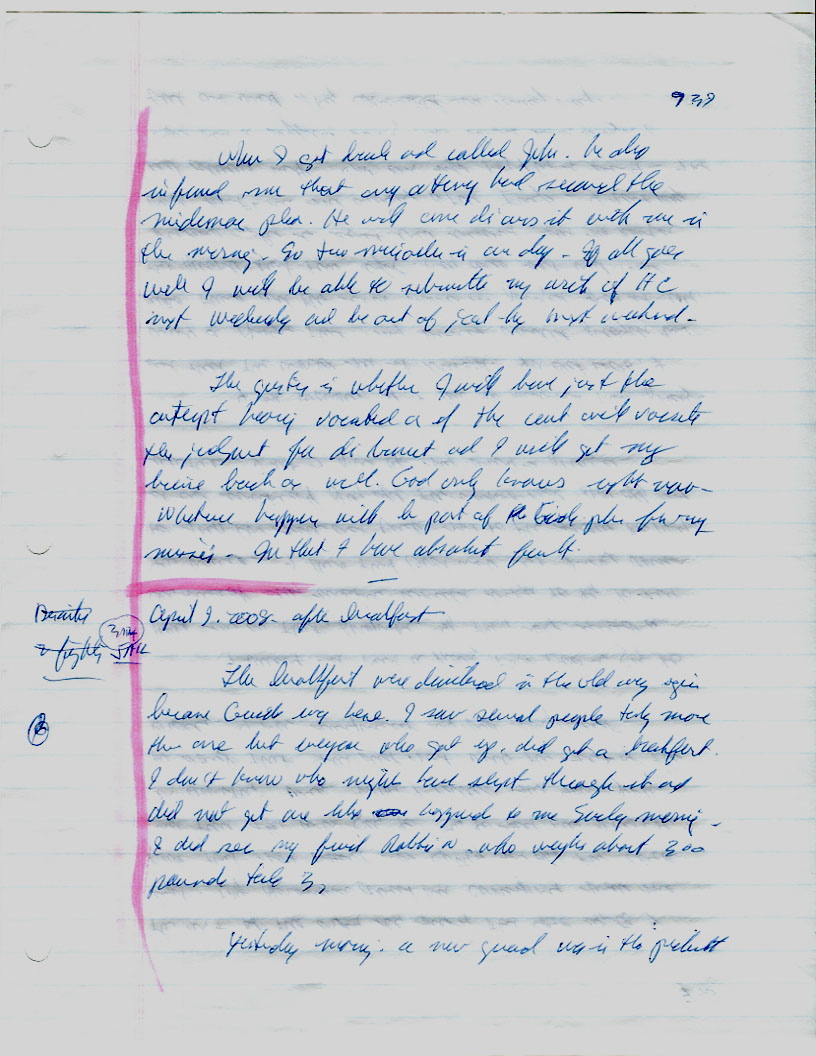 938
When I got back and called John. he also
informed me that my attorney had secured the
misdemeanor plea. He will come discuss it with me in
the morning. So two miracles in one day. If all goes
well I will be able to submit my writ of HC
next Wednesday and be out of jail by next weekend.
The question is whether I will have just the
contempt being vacated or if the court will vacate
the judgment for disbarment and I will get my
license back as well. God only knows right now.
Whatever happens will be part of God's plan for my
. In that I have absolute faith.
April 9. 2008. after breakfast
3rd
JAIL
The breakfast were distributed in the old way again
because was here. I saw several people take more
than one but everyone who got up. did get a breakfast.
I don't know who might have slept through it and
did not get one like happened to me Sunday morning.
I did see my friend Robbin. who weighs about 300
pounds take 3.
Yesterday morning. a new guard was in the